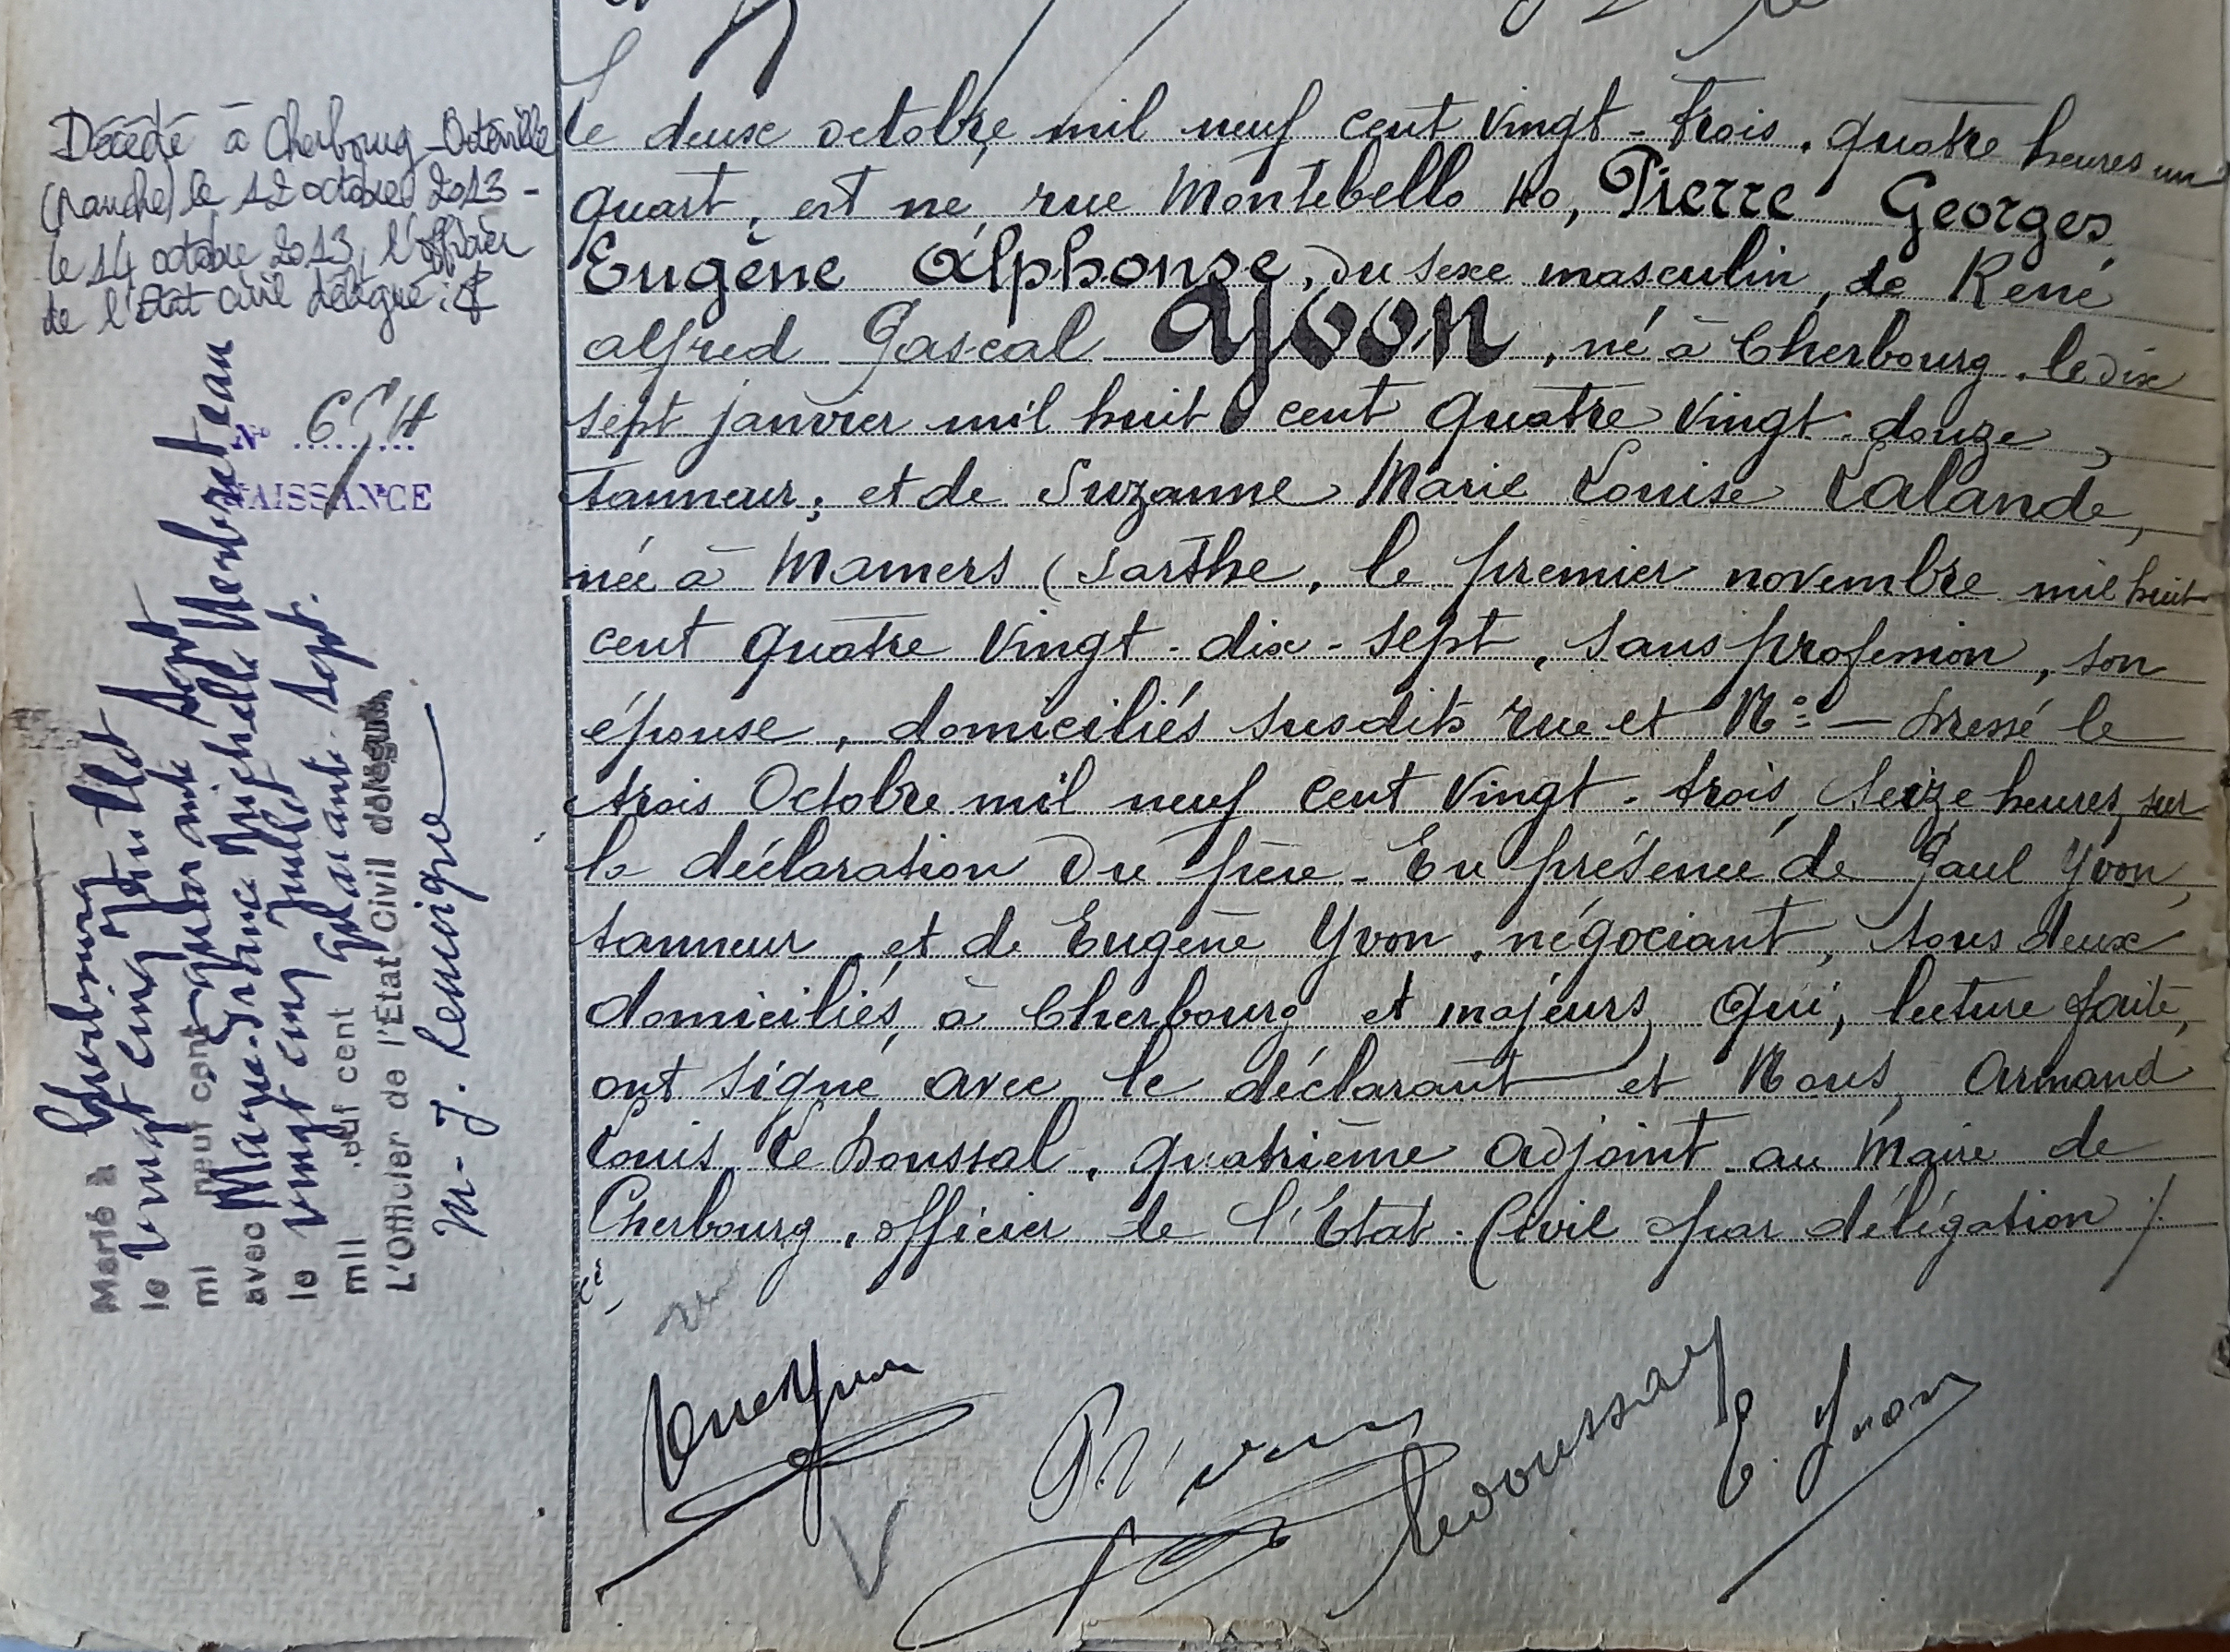 Décédé à Cherbourg-Octeville
(Manche) le 12 octobre 2013 -
le 14 octobre 2013, l'officier
de l'Etat civil délégué :
N° 654
NAISSANCE
Marié à Cherbourg
le vingt cinq Juillet
mil neuf cent quarante sept
avec Marie-France Michelle Herbreteau
le vingt cinq Juillet
mil neuf cent quarante-sept.
L'Officier de l'État Civil délégué,
M-J. Lemoigne
Le deux octobre mil neuf cent vingt-trois, quatre heures un
quart, est né, rue Montebello 40, Pierre Georges
Eugène Alphonse, du sexe masculin, de René
Alfred Pascal Yvon, né à Cherbourg, le dix
sept janvier mil huit cent quatre vingt-douze,
tanneur, et de Suzanne Marie Louise Lalande,
née à Mamers (Sarthe, le premier novembre mil huit
cent quatre vingt-dix-sept, sans profession, son
épouse, domiciliés susdits rue et N°: — Dressé le
trois Octobre mil neuf cent vingt-trois, seize heures, sur
la déclaration du père - En présence de Paul Yvon,
tanneur, et de Eugène Yvon, négociant, tous deux
domiciliés à Cherbourg et majeurs, Qui, lecture faite,
ont signé avec le déclarant et Nous, Armand
Louis Le Doussal, quatrième adjoint au Maire de
Cherbourg, officier de l'État-Civil par délégation ./.
Ledoussal
E. Yvon